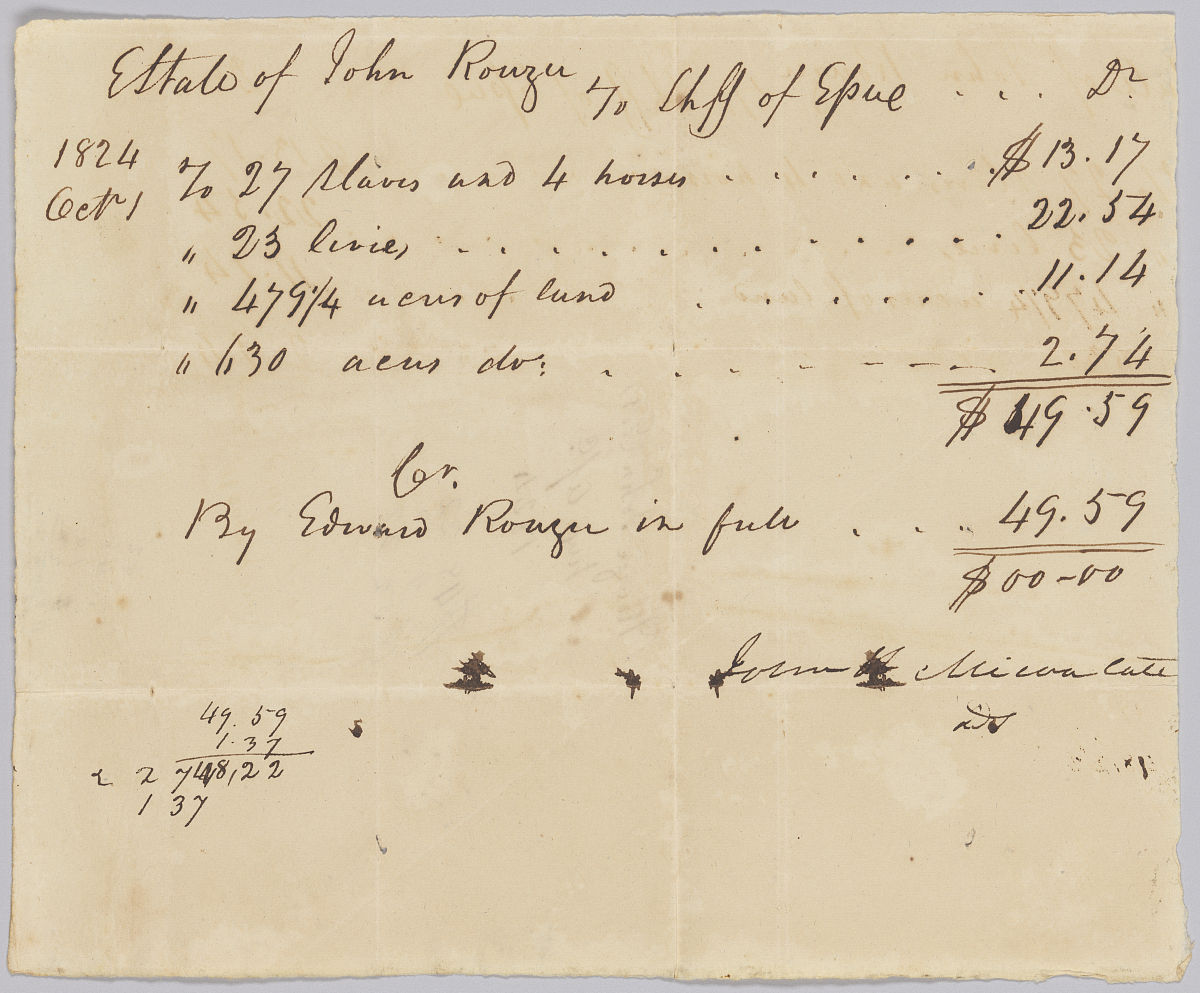 Estate of John Rouzee To Shff of Essex . . . Dr
1824
Octr 1 To 27 Slaves and 4 horses . . . . . . . $13.17
" 23 levies . . . . . . . . . . . . 22.54
" 479 1/4 acres of land . . . . . . . 11.14
" 630 acres do: . . . . - - - 2.74
$49.59
Cr.
By Edward Rouzee in full . . . 49.59
$00-00
John Micou late
DS
49.59
1.37
2 2 74 48,22
1 37